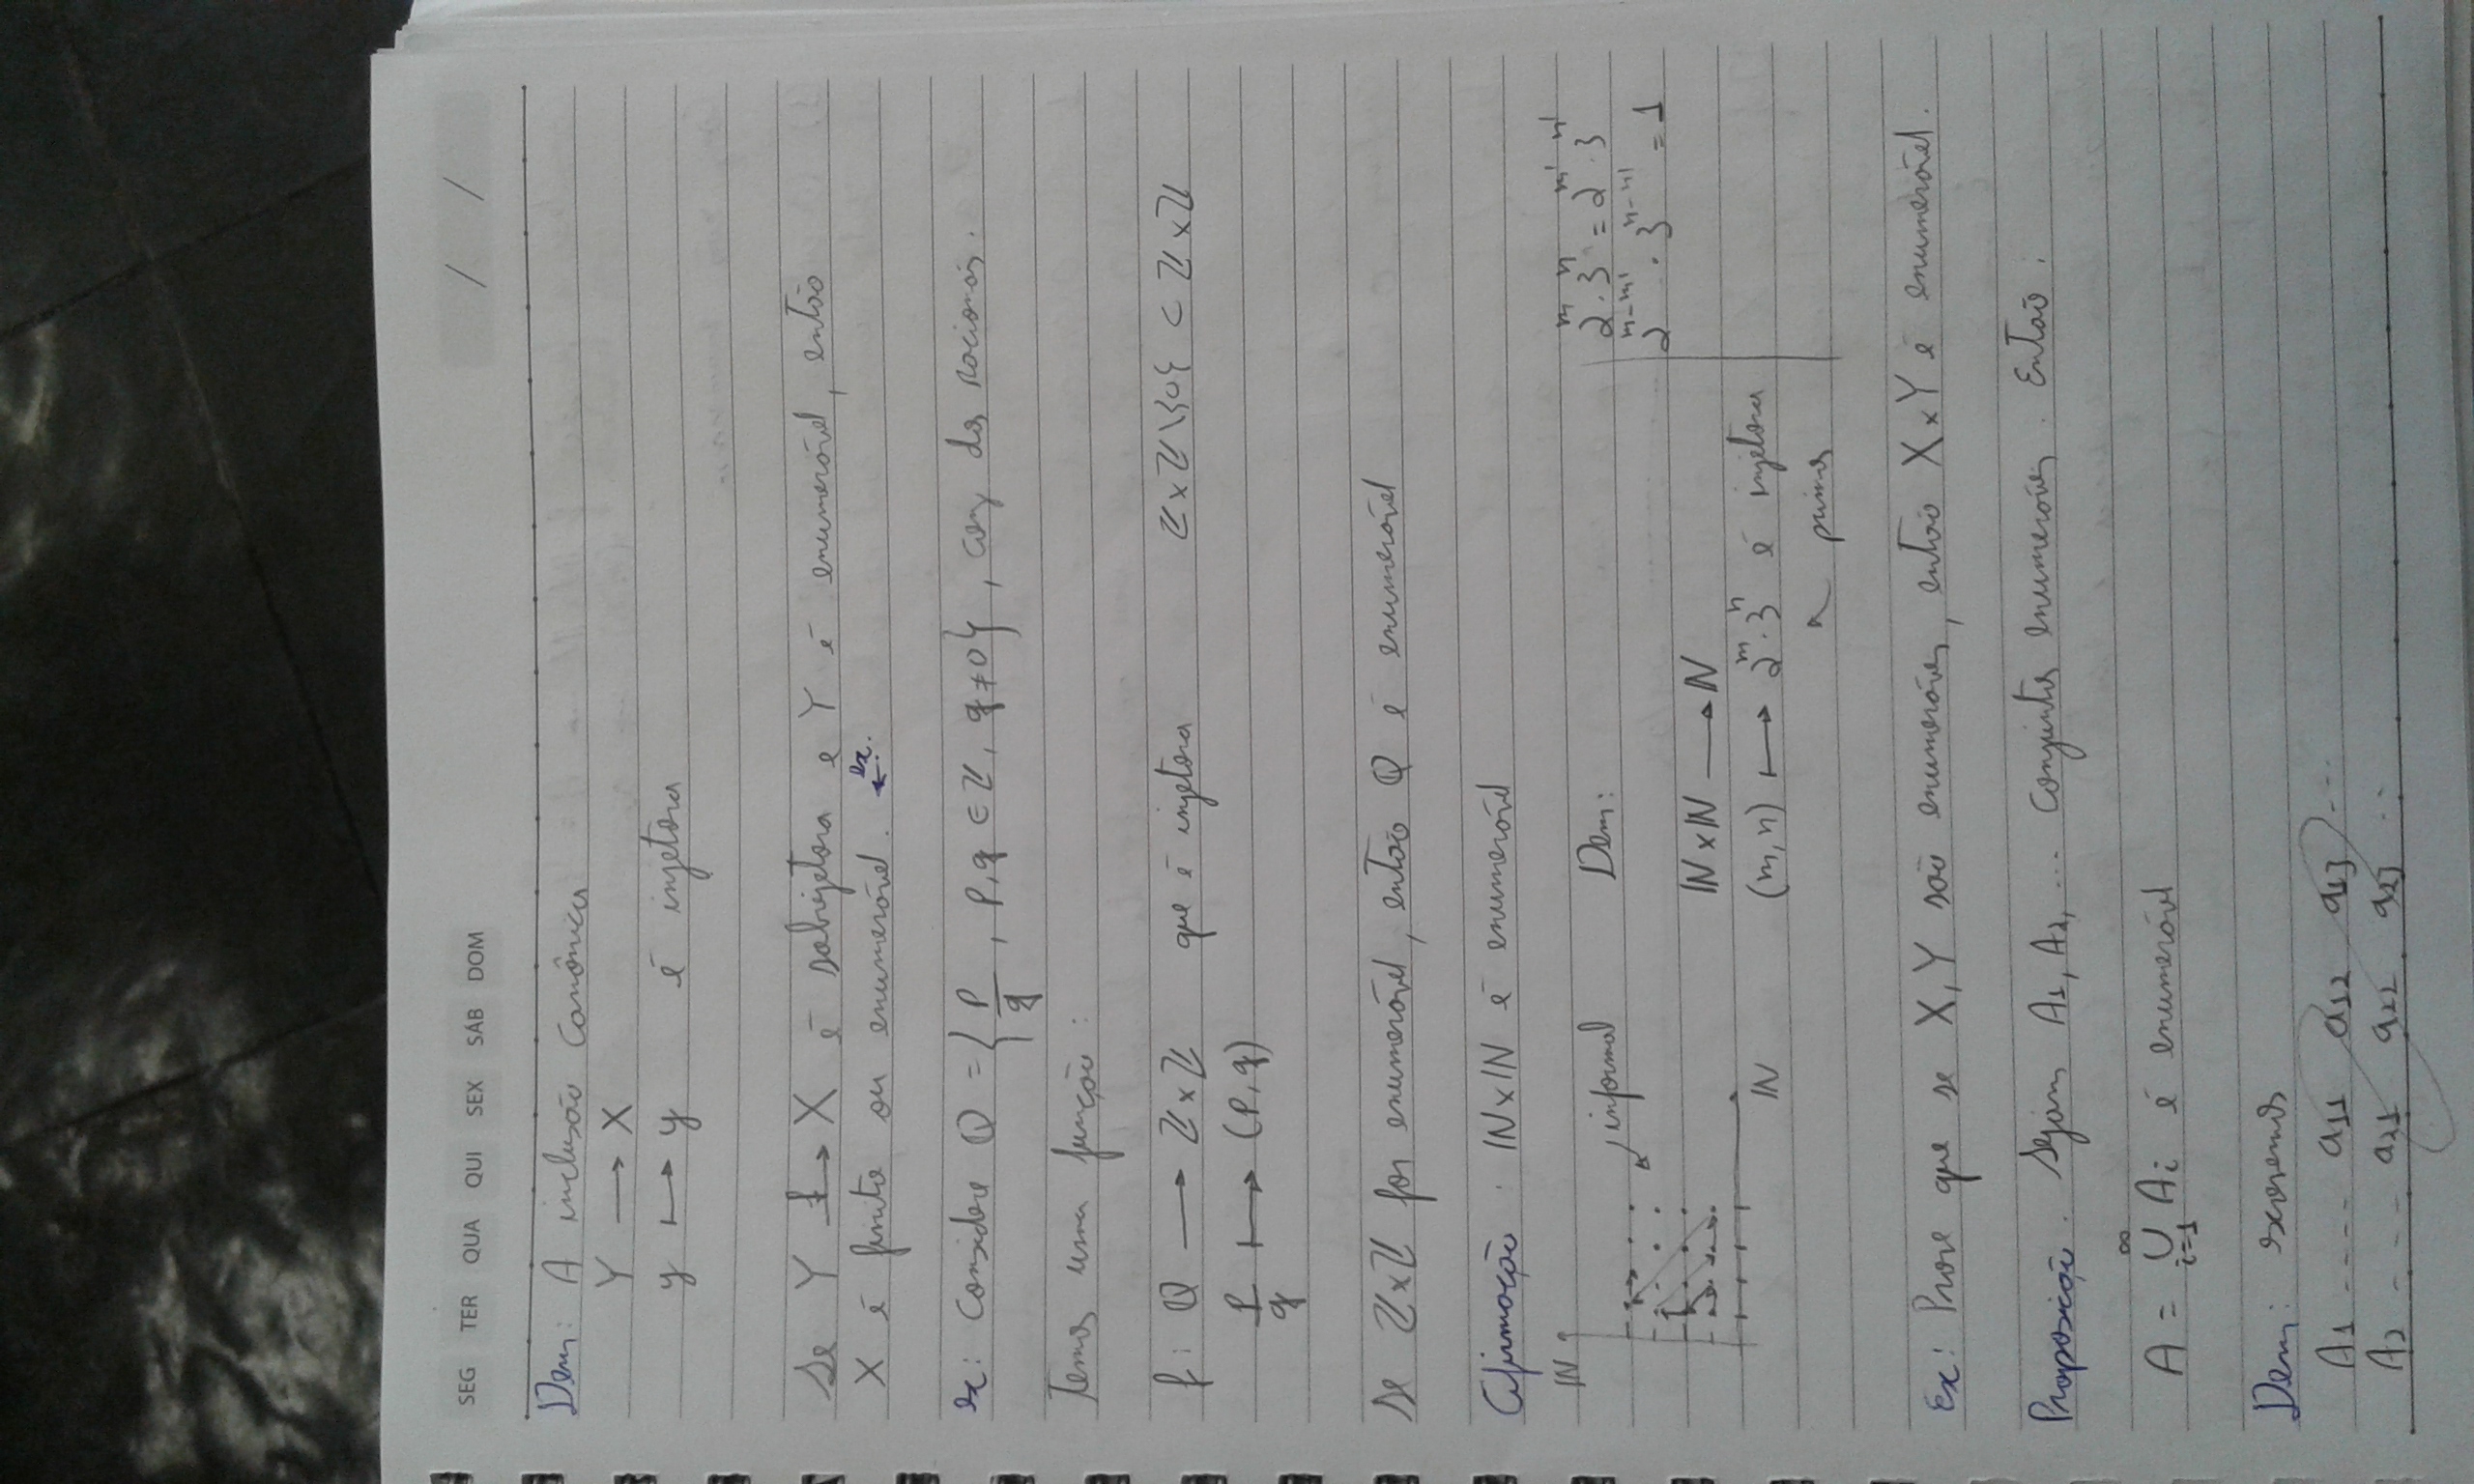 SEG TER QUA QUI SEX SÁB DOM / /
Dem: A inclusão canônica
Y → X
y ↦ y é injetora
Se Y →f X é sobrejetora e Y é enumerável, então
X é finito ou enumerável. ← ex.
ex: Considere Q = { p/q , p,q ∈ Z, q ≠ 0 }, conj dos racionais.
Temos uma função:
f: Q → Z×Z que é injetora Z×Z\{0} ⊂ Z×Z
p/q ↦ (p,q)
Se Z×Z for enumerável, então Q é enumerável
Afirmação: IN×IN é enumerável
IN informal Dem: 2^m · 3^n = 2^m' · 3^n'
2^{m-m'} · 3^{n-n'} = 1
IN×IN → IN
IN (m,n) ↦ 2^m · 3^n é injetora
primos
Ex: Prove que se X, Y são enumeráveis, então X×Y é enumerável.
Proposição. Sejam A1, A2, ... conjuntos enumeráveis. Então:
A = ∞∪i=1 Ai é enumerável
Dem: escrevemos
A1 ---- a11 a12 a13 ...
A2 ---- a21 a22 a23 ...